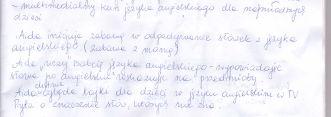 - multimedialny kurs języka angielskiego dla najmłodszych
dzieci
Ada inicjuje zabawy w odgadywanie słówek z języka
angielskiego (zabawa z mamą)
Ada uczy babcię języka angielskiego - wypowiadając
słowa po angielsku wskazuje na przedmioty.
Ada ogląda bajki dla dzieci w języku angielskim w TV
Pyta o znaczenie słów, których nie zna.